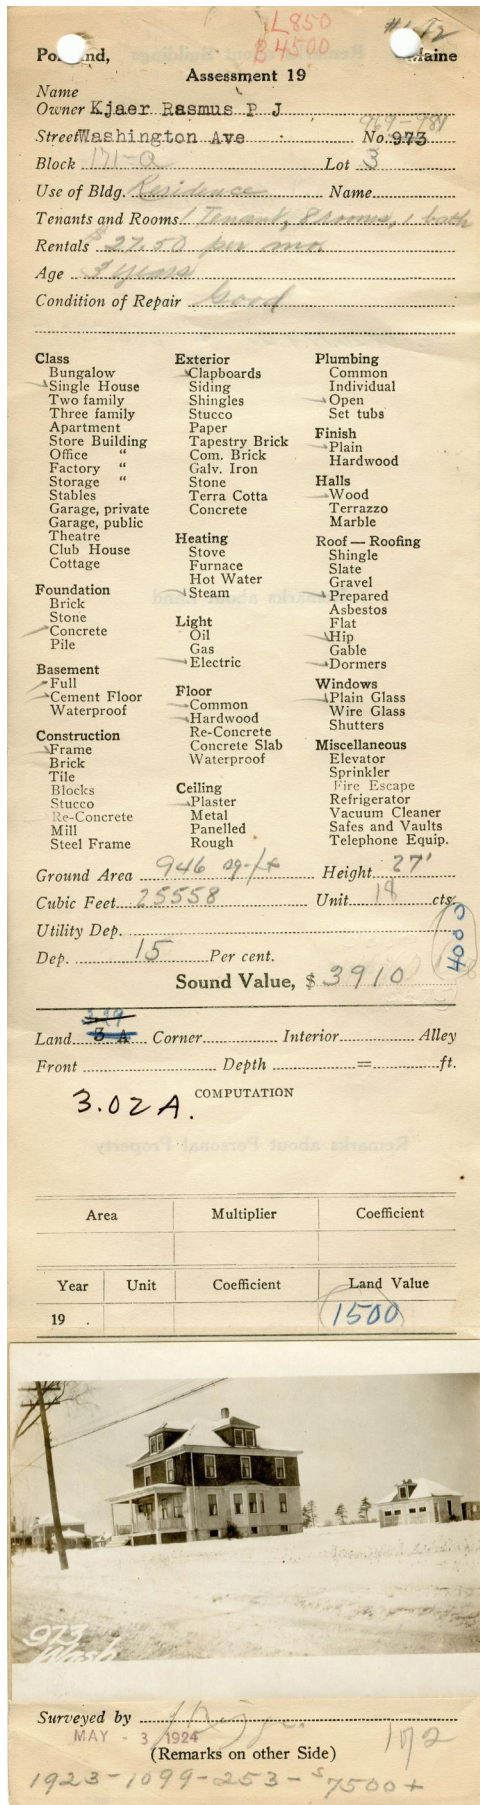 L850
B4500
Portland, Maine
Assessment 19
Name
Owner Kjaer Rasmus P J
969-981
Street Washington Ave No. 973
Block 171-A Lot 3
Use of Bldg. Residence Name
Tenants and Rooms 1 Tenant, 8 rooms, 1 bath
Rentals $27.50 per mo.
Age 3 years
Condition of Repair Good
Class
Bungalow
Single House
Two family
Three family
Apartment
Store Building
Office "
Factory "
Storage "
Stables
Garage, private
Garage, public
Theatre
Club House
Cottage
Foundation
Brick
Stone
Concrete
Pile
Basement
Full
Cement Floor
Waterproof
Construction
Frame
Brick
Tile
Blocks
Stucco
Re-Concrete
Mill
Steel Frame
Exterior
Clapboards
Siding
Shingles
Stucco
Paper
Tapestry Brick
Com. Brick
Galv. Iron
Stone
Terra Cotta
Concrete
Heating
Stove
Furnace
Hot Water
Steam
Light
Oil
Gas
Electric
Floor
Common
Hardwood
Re-Concrete
Concrete Slab
Waterproof
Ceiling
Plaster
Metal
Panelled
Rough
Plumbing
Common
Individual
Open
Set tubs
Finish
Plain
Hardwood
Halls
Wood
Terrazzo
Marble
Roof — Roofing
Shingle
Slate
Gravel
Prepared
Asbestos
Flat
Hip
Gable
Dormers
Windows
Plain Glass
Wire Glass
Shutters
Miscellaneous
Elevator
Sprinkler
Fire Escape
Refrigerator
Vacuum Cleaner
Safes and Vaults
Telephone Equip.
Ground Area 946 sq-ft Height 27'
Cubic Feet 25558 Unit 18 cts.
Utility Dep.
4000
Dep. 15 Per cent.
Sound Value, $ 3910
Land 3 A Corner Interior Alley
Front Depth = ft.
COMPUTATION
3.02 A.
Area Multiplier Coefficient
Year Unit Coefficient Land Value
19 . 1500
973
Wash
Surveyed by
MAY - 3 1924
(Remarks on other Side)
172
1923-1099-253-$7500+